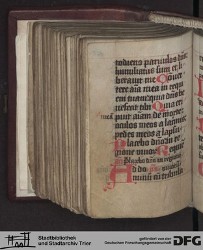 todiens paruulos dns
humiliatus sum et li
berauit me Conuer
tere aīa mea in requi
em tuam quia dns be
nefecit tibi Quia eri
puit aīam de morte
meā
oculos meos a lacrimis
pedes meos a lapsu
Placebo dno in re
gione viuor
Stadtbibliothek
und Stadtarchiv Trier
gefördert von der
Deutschen Forschungsgemeinschaft
DFG